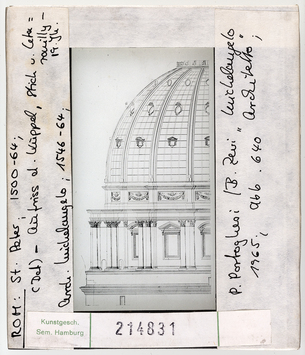 ROM: St. Peter, 1500-64;
(Det) - Aufriss d. Kuppel, Stich v. Leta=
rouilly -
19. Jh.
Arch. Michelangelo, 1546-64;
P. Portoghesi / B. Zevi "Michelangelo
1965, Abb. 640 Architetto",
Kunstgesch.
Sem. Hamburg
214831